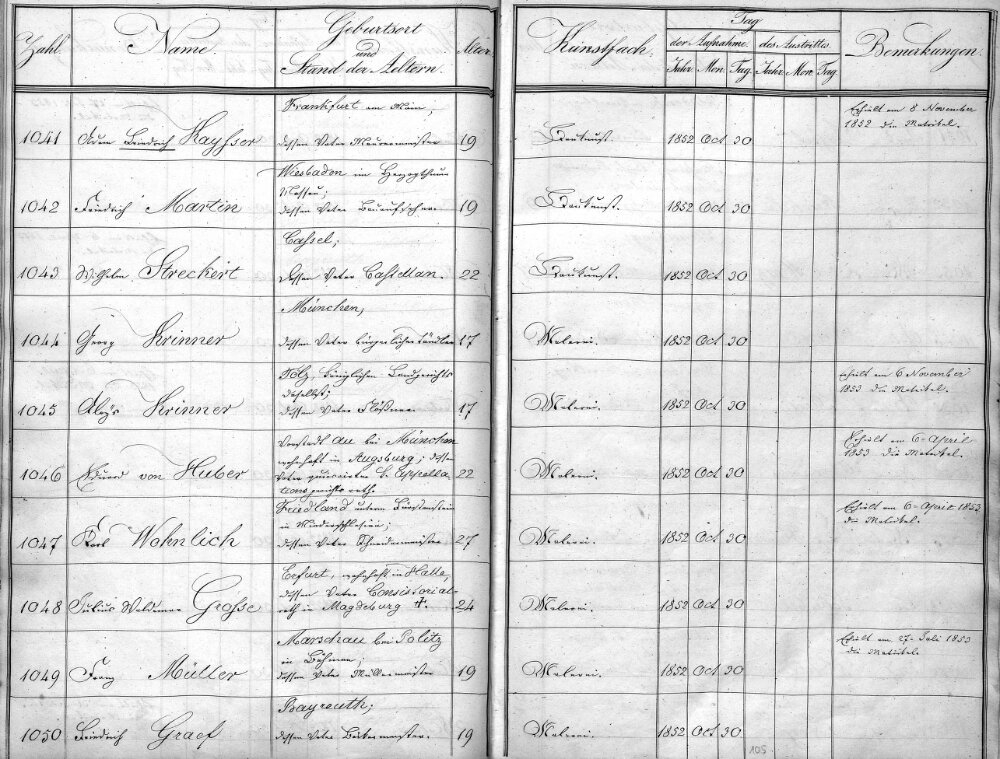 Zahl. Name. Geburtsort und Stand der Aeltern. Alter Kunstfach. Tag der Aufnahme. des Austrittes Bemerkungen.
Jahr Mon. Tag. Jahr. Mon. Tag.
Frankfurt am Main; Erhält am 8 November
1041 Adam Friedrich Kaysser dessen Vater Maurermeister 19 Baukunst. 1852 Oct 30 1852 die Matrikel.
Wiesbaden im Herzogthum
Nassau;
1042 Friedrich Martin dessen Vater 19 Baukunst. 1852 Oct 30
Cassel;
1043 Wilhelm Streckert dessen Vater Castellan. 22 Baukunst. 1852 Oct 30
München,
1044 Georg Krinner dessen Vater bürgerlicher 17 Malerei. 1852 Oct 30
Tölz, königlichen Landgerichts Erhält am 6 November
daselbst; 1853 die Matrikel.
1045 Aloys Krinner dessen Vater Flößer. 17 Malerei. 1852 Oct 30
Vorstadt Au bei München Erhält am 6-April
wohnhaft in Augsburg; dessen 1853 die Matrikel.
1046 Eduard von Huber Vater quiescirter k. Appella- 22 Malerei. 1852 Oct 30
tionsgerichtsrath.
Friedland unterm Fürstenstein Erhält am 6-April 1853
in Niederschlesien; die Matrikel.
1047 Karl Wohnlich dessen Vater Schneidermeister 27 Malerei. 1852 Oct 30
Erfurt, wohnhaft in Halle,
dessen Vater Consistorial-
1048 Julius Waldemar Grosse rath in Magdeburg †. 24 Malerei. 1852 Oct 30
Marschau bei Politz Erhält am 27-Juli 1853
in Böhmen; die Matrikel.
1049 Franz Müller dessen Vater Müllermeister 19 Malerei. 1852 Oct 30
Bayreuth;
1050 Friedrich Graef dessen Vater Bäckermeister. 19 Malerei. 1852 Oct 30
105